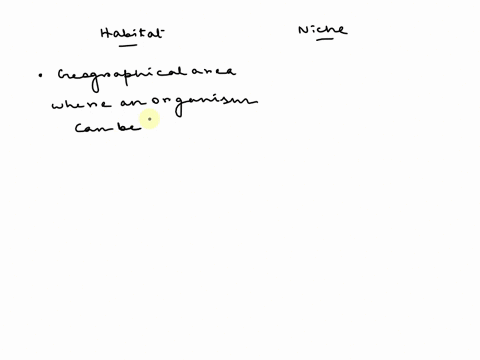 Habitat Niche
• Geographical area
where an organism
can be